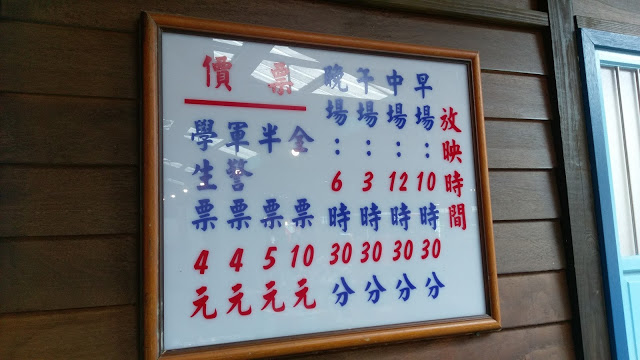 放映時間
早場：10時30分
中場：12時30分
午場：3時30分
晚場：6時30分
票價
全票10元
半票5元
軍警票4元
學生票4元